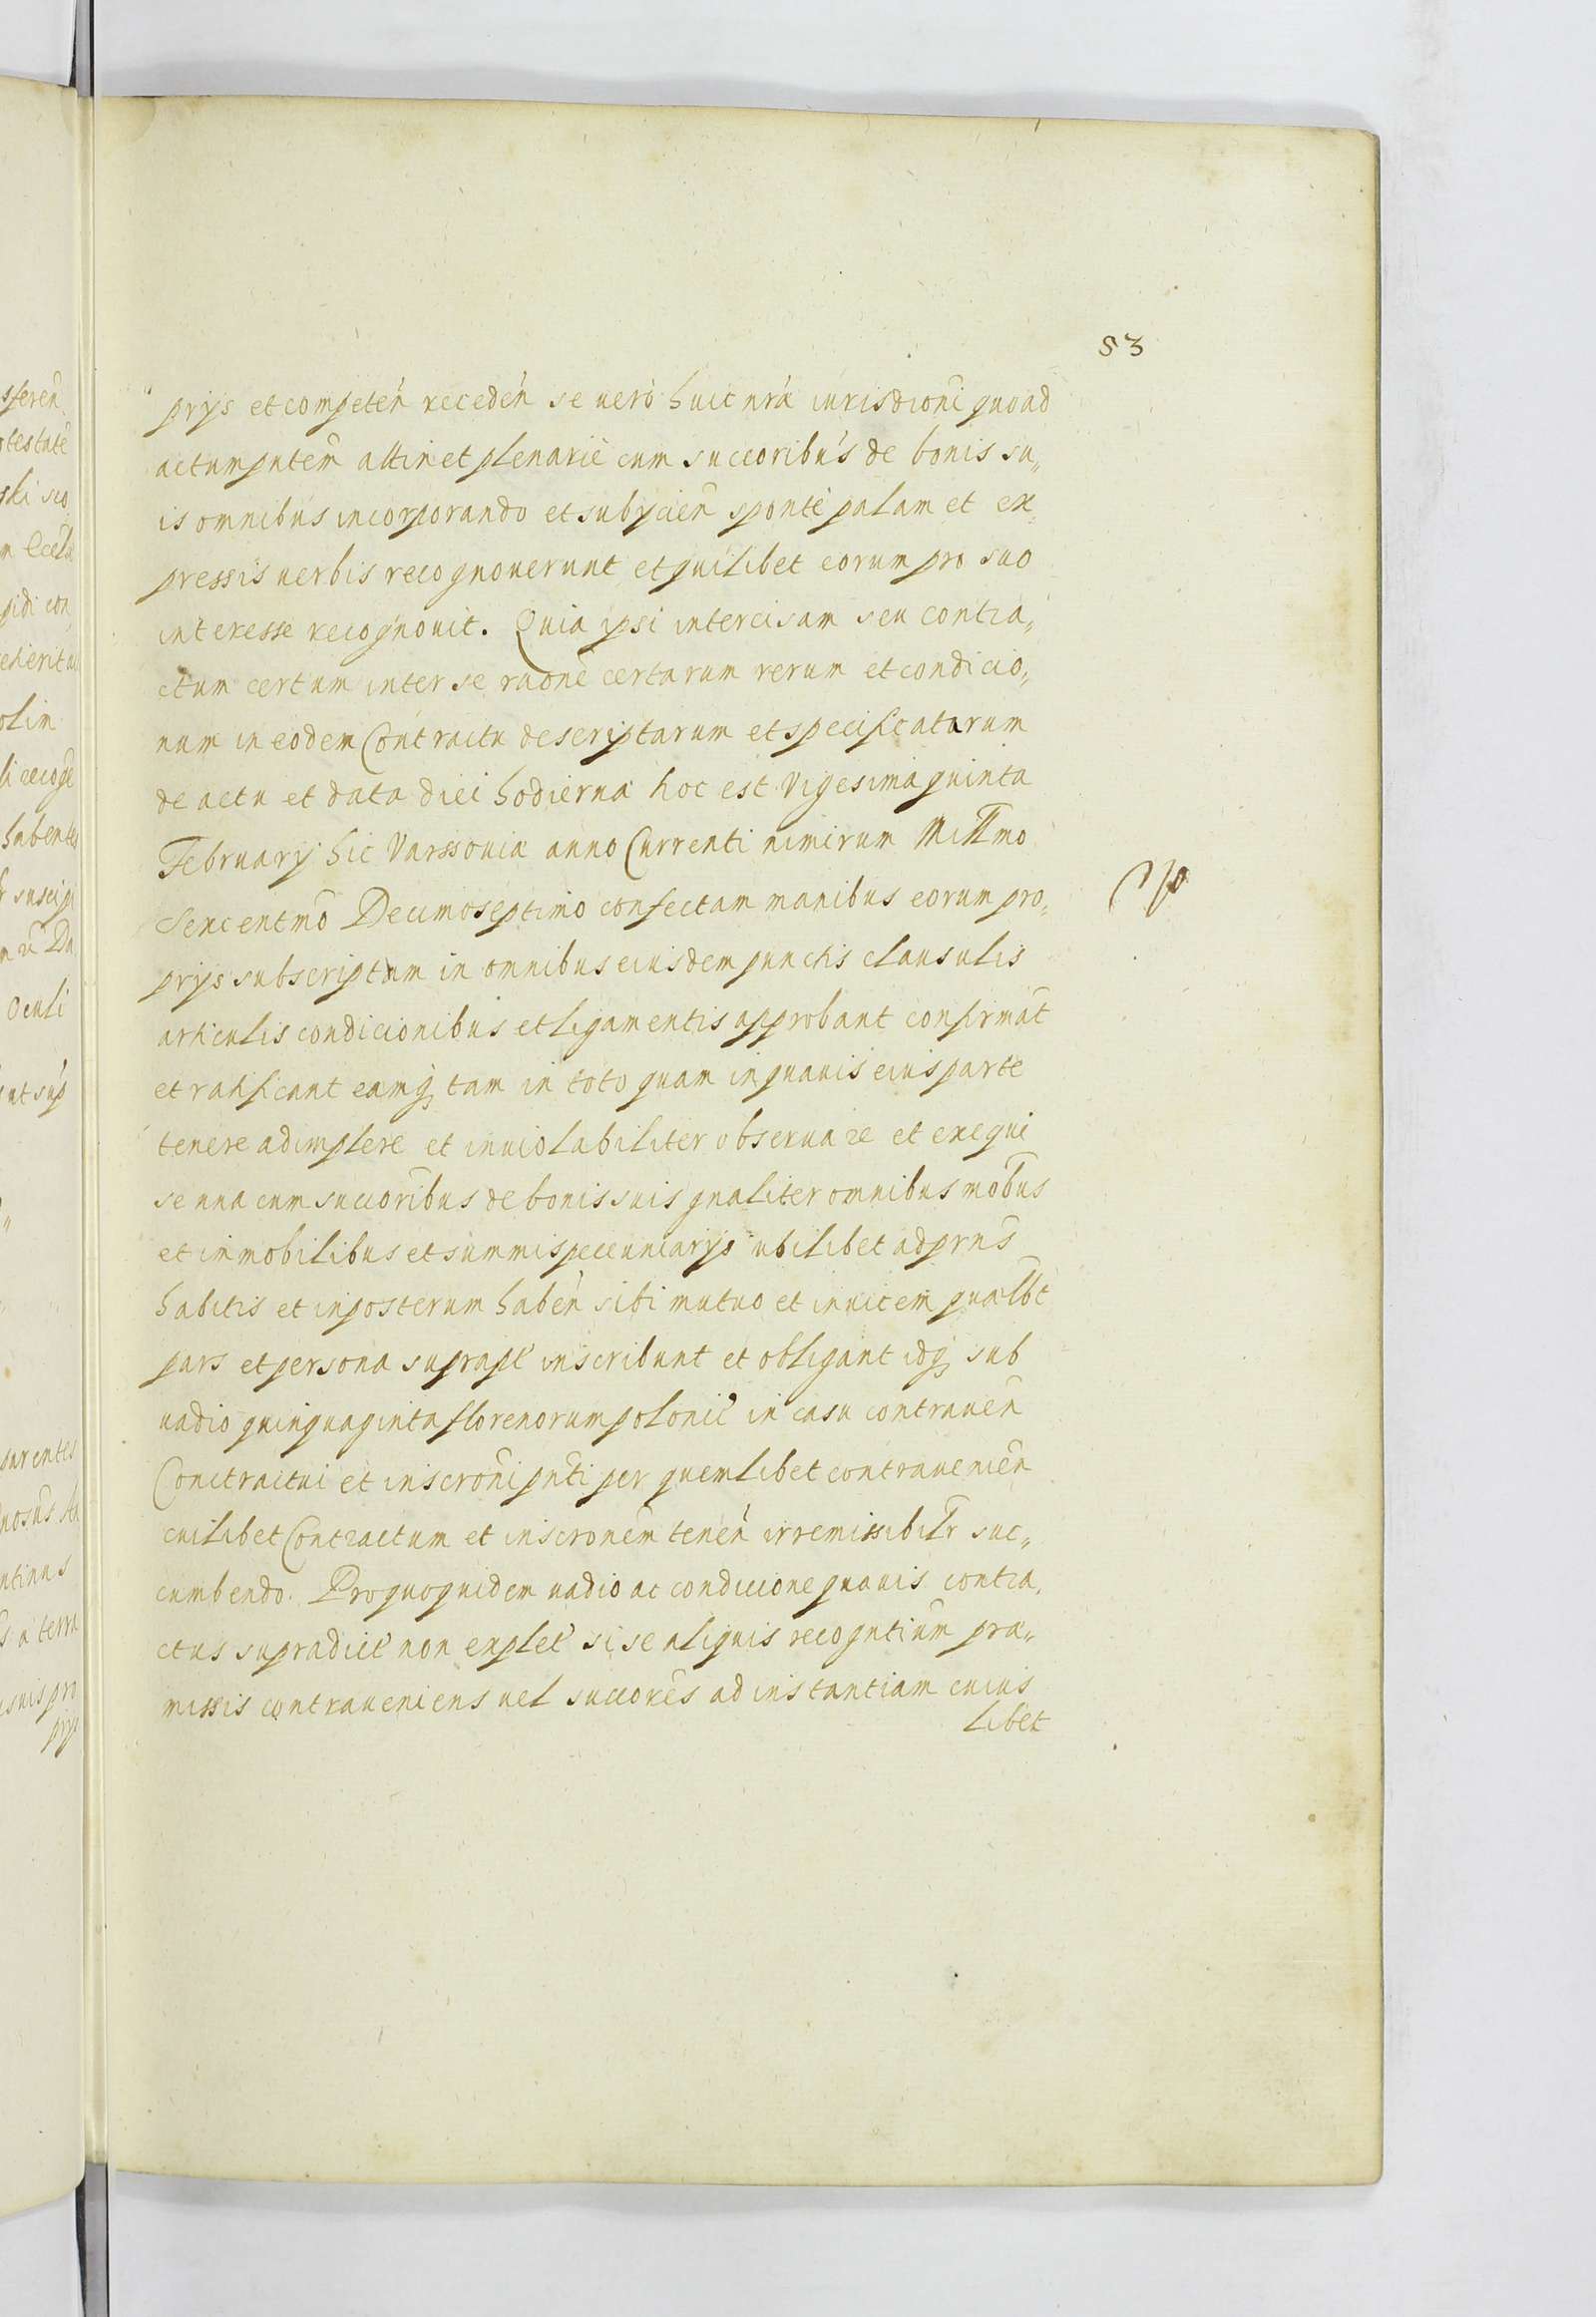 53
prijs et competeń recedeń se vero huic nrã iurisdioni quoad
actum pntem attinet plenarie cum succoribus de bonis su„
is omnibus incorporando et subycień sponte palam et ex„
pressis uerbis recognouerunt et quilibet eorum pro suo
interesse recognouit. Quia ipsi intercisam seu contra„
ctum certum inter se raone certarum rerum et condicio„
num in eodem Contractu descriptarum et specificatarum
de actu et data diei hodierna hoc est Vigesima quinta
February hic Varssouiæ anno Currenti nimirum Millmo
Sexcentmo Decimoseptimo confectam manibus eorum pro„
prijs subscriptam in omnibus eiusdem punctis clausulis
articulis condicionibus et ligamentis approbant confirmãt
et ratificant eamq; tam in toto quam in quauis eius parte
tenere adimplere et inuiolabiliter obseruare et exequi
se una cum succoribus de bonis suis gnaliter omnibus mobus
et inmobilibus et summis pecuniarijs ubilibet ad prns
habitis et inposterum habeń sibi mutuo et inuicem quælbt
pars et persona suprapt inscribunt et obligant idq; sub
uadio quinquaginta florenorum polonic in casu contraueń
Contractui et inscroni pnti per quemlibet contrauenień
cuilibet Contractum et inscronem teneń irremissibilr suc„
cumbendo. Pro quo quidem uadio ac condicione quauis contra„
ctus supradict non explet si se aliquis recogntium præ„
missis contraueniens uel succores ad instantiam cuius
libet